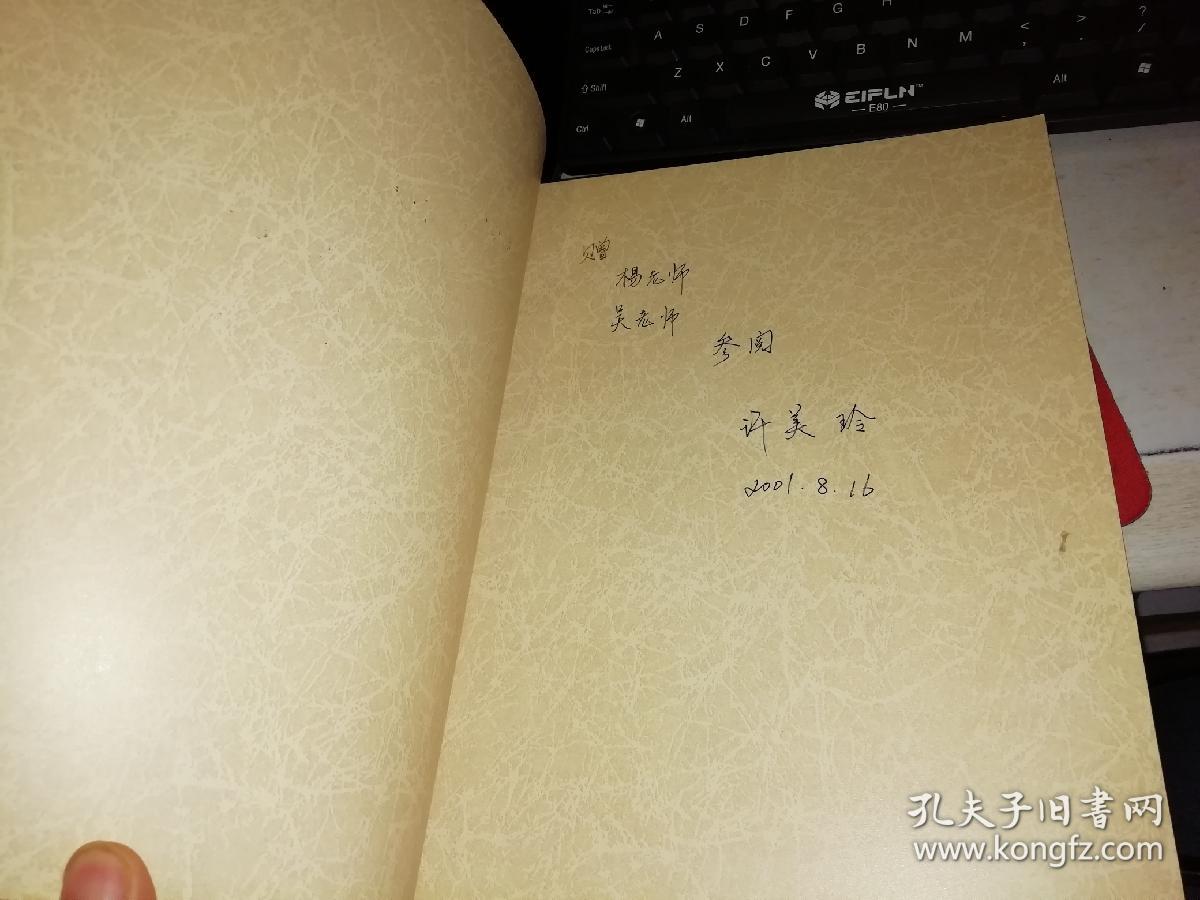 Tab
A S D F G H
Caps Lock
Z X C V B N M < , > . ? /
Shift
EIFLN™
E80
Ctrl Alt Alt
赠
杨老师
吴老师
参阅
许美玲
2001.8.16
孔夫子旧書网
www.kongfz.com